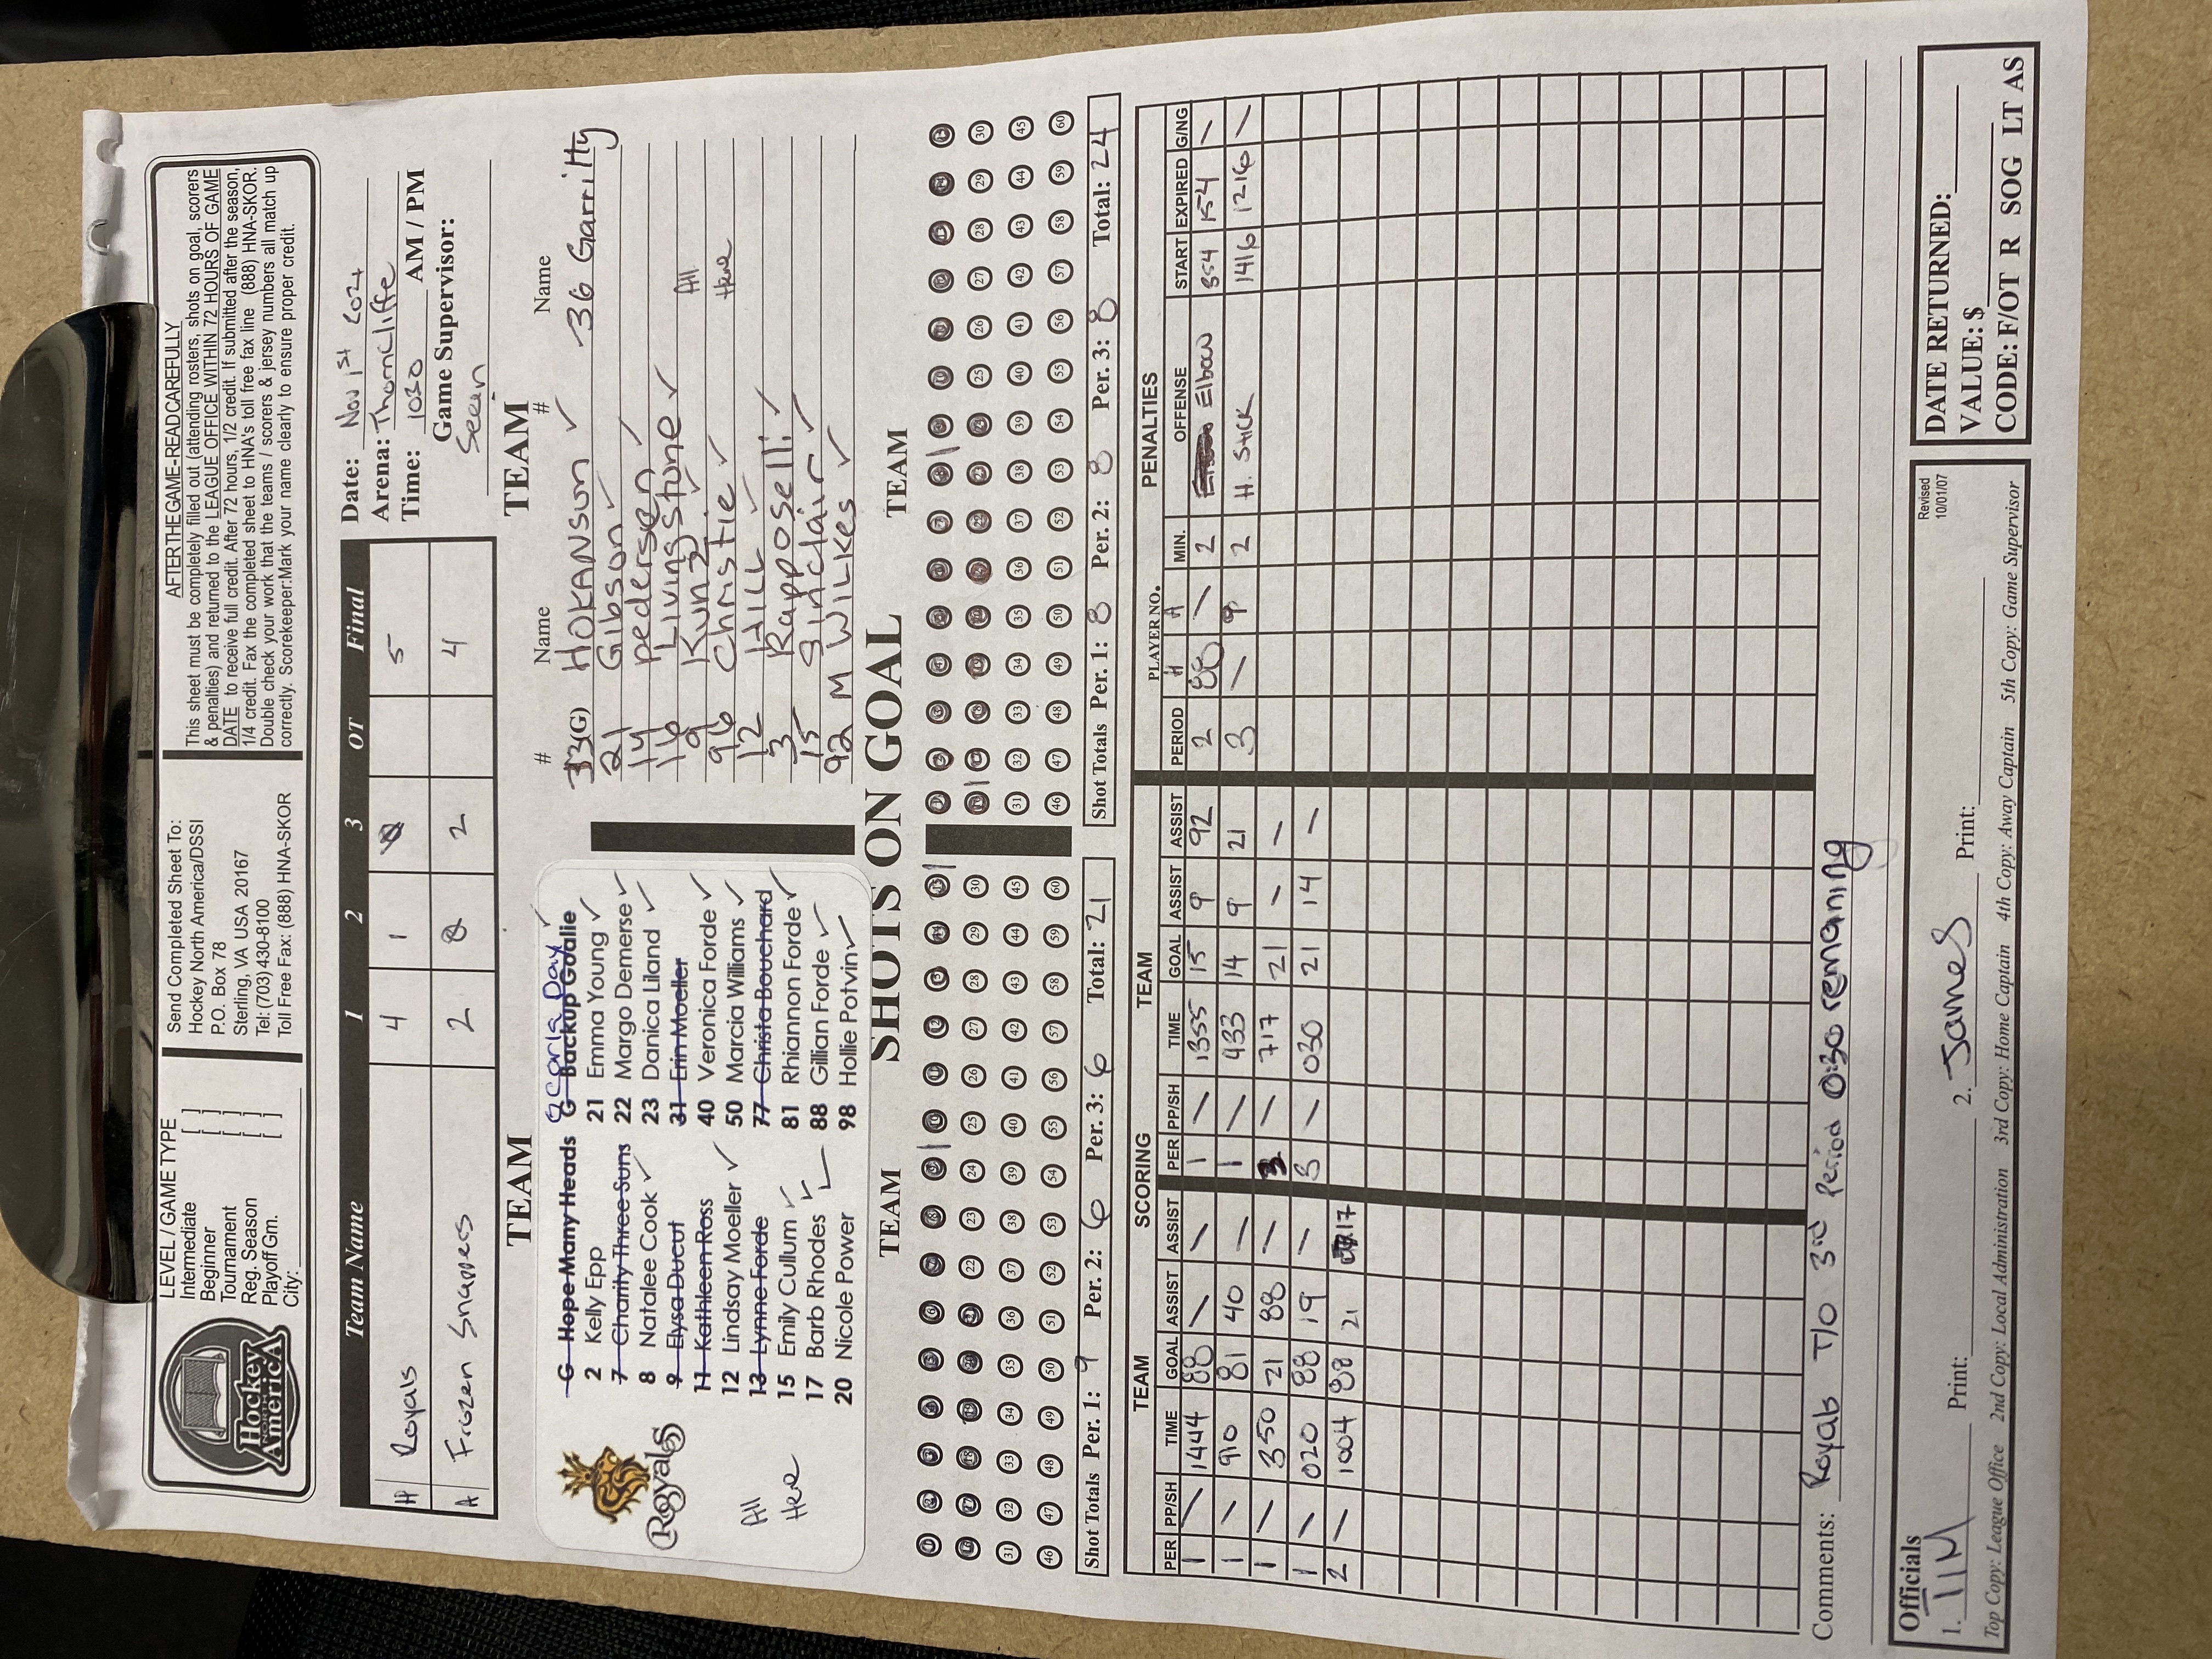 Hockey
NORTH
America
LEVEL / GAME TYPE
Intermediate [ ]
Beginner [ ]
Tournament [ ]
Reg. Season [ ]
Playoff Gm. [ ]
City:
Send Completed Sheet To:
Hockey North America/DSSI
P.O. Box 78
Sterling, VA USA 20167
Tel: (703) 430-8100
Toll Free Fax: (888) HNA-SKOR
AFTER THE GAME-READ CAREFULLY
This sheet must be completely filled out (attending rosters, shots on goal, scorers
& penalties) and returned to the LEAGUE OFFICE WITHIN 72 HOURS OF GAME
DATE to receive full credit. After 72 hours, 1/2 credit. If submitted after the season,
1/4 credit. Fax the completed sheet to HNA's toll free fax line (888) HNA-SKOR.
Double check your work that the teams / scorers & jersey numbers all match up
correctly. Scorekeeper:Mark your name clearly to ensure proper credit.
Team Name 1 2 3 OT Final
H Royals 4 1 5
A Frozen Snappers 2 0 2 4
Date: Nov 1st 2024
Arena: Thorncliffe
Time: 1030 AM / PM
Game Supervisor:
Sean
TEAM
Royals
All
Here
G Hope Many Heads
2 Kelly Epp
7 Charity Three Suns
8 Natalee Cook
9 Elysa Ducut
11 Kathleen Ross
12 Lindsay Moeller
13 Lynne Forde
15 Emily Cullum
17 Barb Rhodes
20 Nicole Power
Carla Day
G Backup Goalie
21 Emma Young
22 Margo Demerse
23 Danica Liland
31 Erin Moeller
40 Veronica Forde
50 Marcia Williams
77 Christa Bouchard
81 Rhiannon Forde
88 Gillian Forde
98 Hollie Potvin
TEAM
# Name # Name
33(G) HOKANSON 36 Garritty
21 Gibson
14 pedersen
16 Livingstone
9 Kunz
96 Christie
12 HILL
3 Rapposelli
15 Sinclair
92 M WILKES
All
Here
TEAM SHOTS ON GOAL TEAM
1 2 3 4 5 6 7 8 9 10 11 12 13 14 15
16 17 18 19 20 21 22 23 24 25 26 27 28 29 30
31 32 33 34 35 36 37 38 39 40 41 42 43 44 45
46 47 48 49 50 51 52 53 54 55 56 57 58 59 60
Shot Totals Per. 1: 9 Per. 2: 6 Per. 3: 6 Total: 21
1 2 3 4 5 6 7 8 9 10 11 12 13 14 15
16 17 18 19 20 21 22 23 24 25 26 27 28 29 30
31 32 33 34 35 36 37 38 39 40 41 42 43 44 45
46 47 48 49 50 51 52 53 54 55 56 57 58 59 60
Shot Totals Per. 1: 8 Per. 2: 8 Per. 3: 8 Total: 24
TEAM SCORING TEAM
PER PP/SH TIME GOAL ASSIST ASSIST
1 / 1444 88 / /
1 / 910 81 40 /
1 / 350 21 88 /
1 / 020 88 19 /
2 / 1004 88 21 17
PER PP/SH TIME GOAL ASSIST ASSIST
1 / 1355 15 9 92
1 / 433 14 9 21
3 / 717 21 / /
3 / 030 21 14 /
PENALTIES
PLAYER NO.
PERIOD H A MIN. OFFENSE START EXPIRED G/NG
2 88 / 2 Elbow 354 154 /
3 / 9 2 H. Stick 1416 1216 /
Comments: Royals T/O 3rd Period 0:30 remaining
Officials
1. TIM Print: 2. James Print:
Revised
10/01/07
Top Copy: League Office 2nd Copy: Local Administration 3rd Copy: Home Captain 4th Copy: Away Captain 5th Copy: Game Supervisor
DATE RETURNED:
VALUE: $
CODE: F/OT R SOG LT AS